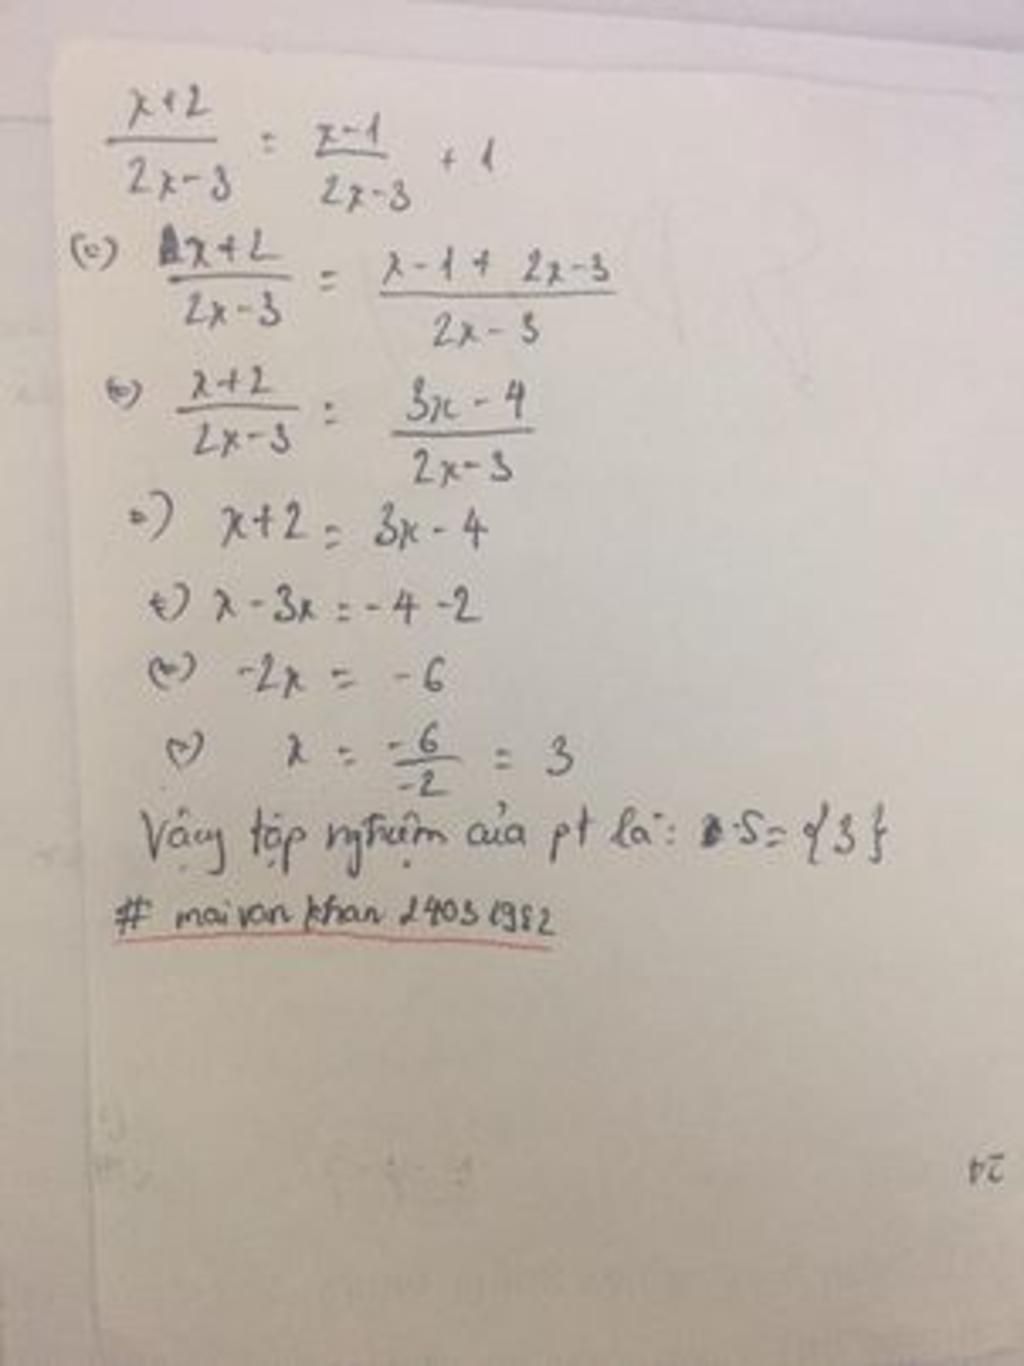 x+2 / 2x-3 = x-1 / 2x-3 + 1
(=) x+2 / 2x-3 = x-1+2x-3 / 2x-3
(=) x+2 / 2x-3 = 3x-4 / 2x-3
=) x+2 = 3x-4
(=) x-3x = -4-2
(=) -2x = -6
(=) x = -6 / -2 = 3
Vậy tập nghiệm của pt là: S={3}
# maivankhan 24031982
24